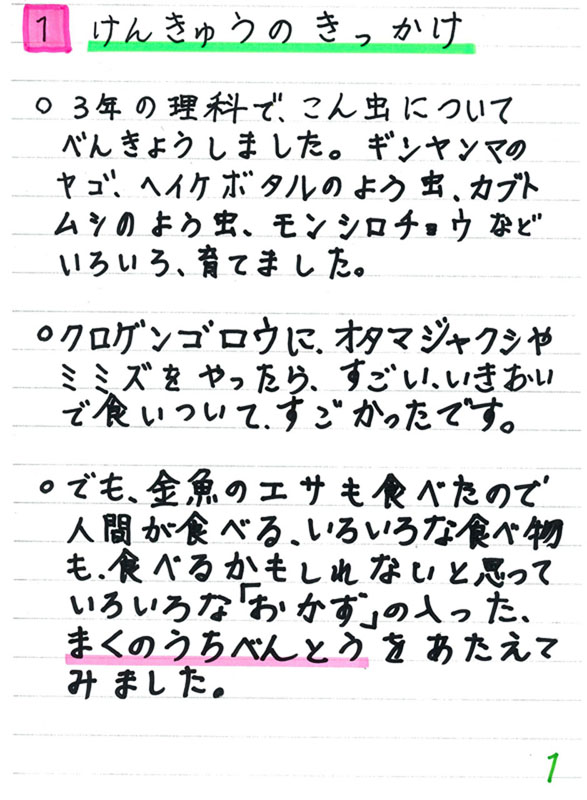 1 けんきゅうのきっかけ
○ 3年の理科で、こん虫について
べんきょうしました。ギンヤンマの
ヤゴ、ヘイケボタルのよう虫、カブト
ムシのよう虫、モンシロチョウなど
いろいろ、育てました。
○クロゲンゴロウに、オタマジャクシや
ミミズをやったら、すごい、いきおい
で食いついて、すごかったです。
○でも、金魚のエサも食べたので
人間が食べる、いろいろな食べ物
も、食べるかもしれないと思って
いろいろな「おかず」の入った、
まくのうちべんとうをあたえて
みました。
1